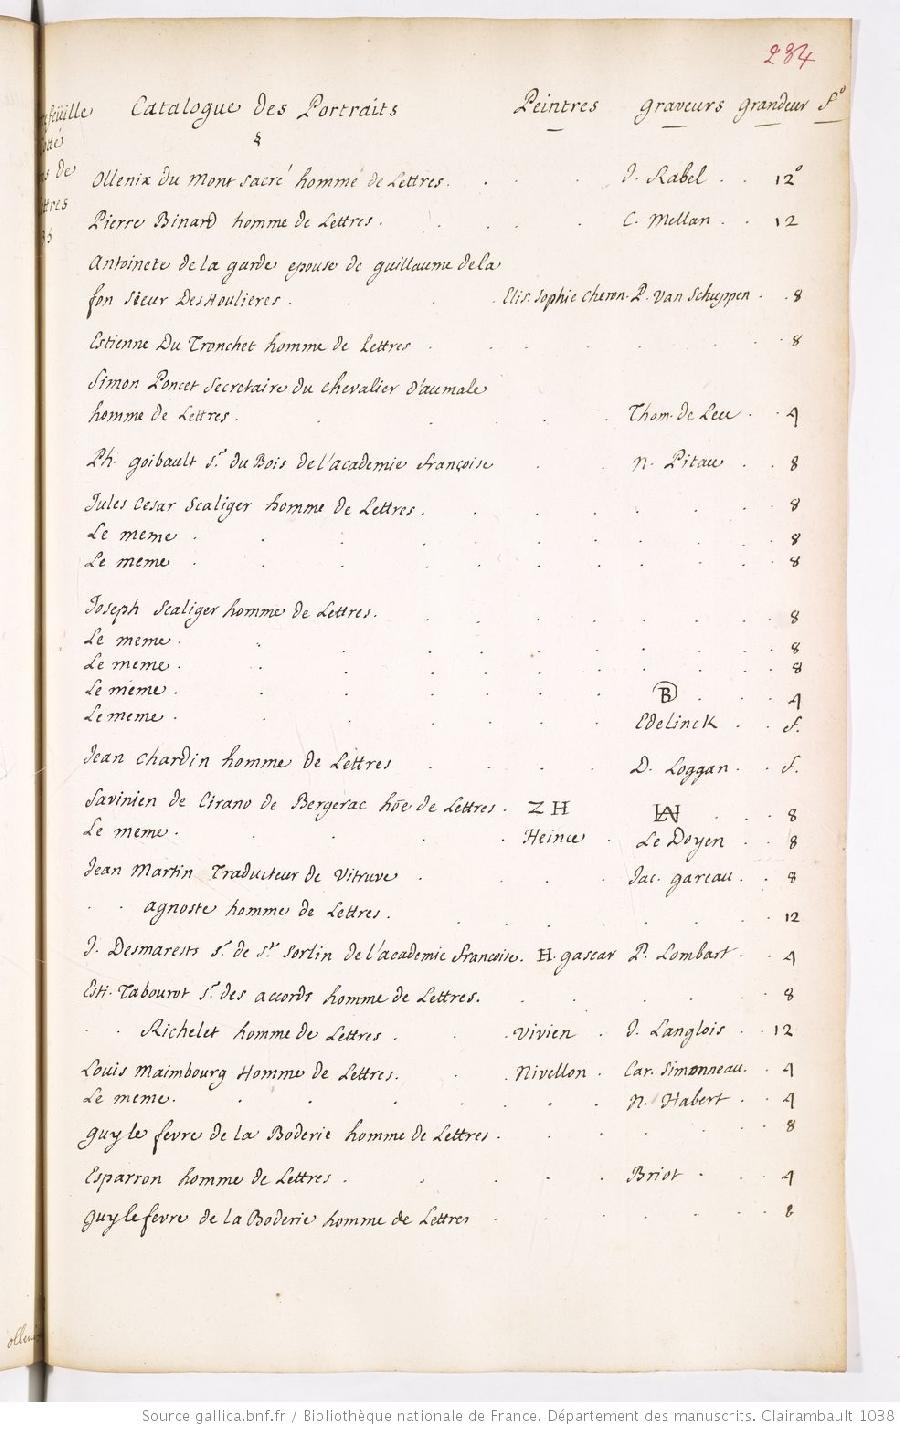 284
Catalogue des Portraits Peintres graveurs grandeur f.º
Ollenix du mont sacré homme de Lettres. J. Rabel 12º
Pierre Binard homme de Lettres. C. Mellan 12
Antoinete de la garde epouse de guillaume de la
fon sieur DesHoulieres. Elis. Sophie Cheron. P. Van Schuppen 8
Estienne Du Tronchet homme de Lettres 8
Simon Poncet Secretaire du chevalier d'aumale
homme de Lettres. Thom. de Leu 4
Ph. goibault s.r du Bois de l'academie françoise n. Pitau 8
Jules Cesar Scaliger homme de Lettres. 8
Le meme 8
Le meme 8
Joseph Scaliger homme de Lettres. 8
Le meme. 8
Le meme. 8
Le meme. B 4
Le meme. Edelinck f.
Jean Chardin homme de Lettres D. Loggan f.
Savinien de Cirano de Bergerac hoe de Lettres. Z H 8
Le meme. Heince Le Doyen 8
Jean Martin Traducteur de Vitruve Jac. gareau 8
agnoste homme de Lettres. 12
J. Desmarests s.r de s.t Sorlin de l'academie françoise. H. gascar P. Lombart 4
Esti. Tabourot s.r des accords homme de Lettres. 8
Richelet homme de Lettres Vivien J. Langlois 12
Louis Maimbourg Homme de Lettres. Nivellon Car. Simonneau. 4
Le meme. N. Habert 4
guy le fevre de la Boderie homme de Lettres. 8
Esparron homme de Lettres. Briot 4
guy le fevre de la Boderie homme de Lettres 8
Source gallica.bnf.fr / Bibliothèque nationale de France. Département des manuscrits. Clairambault 1038